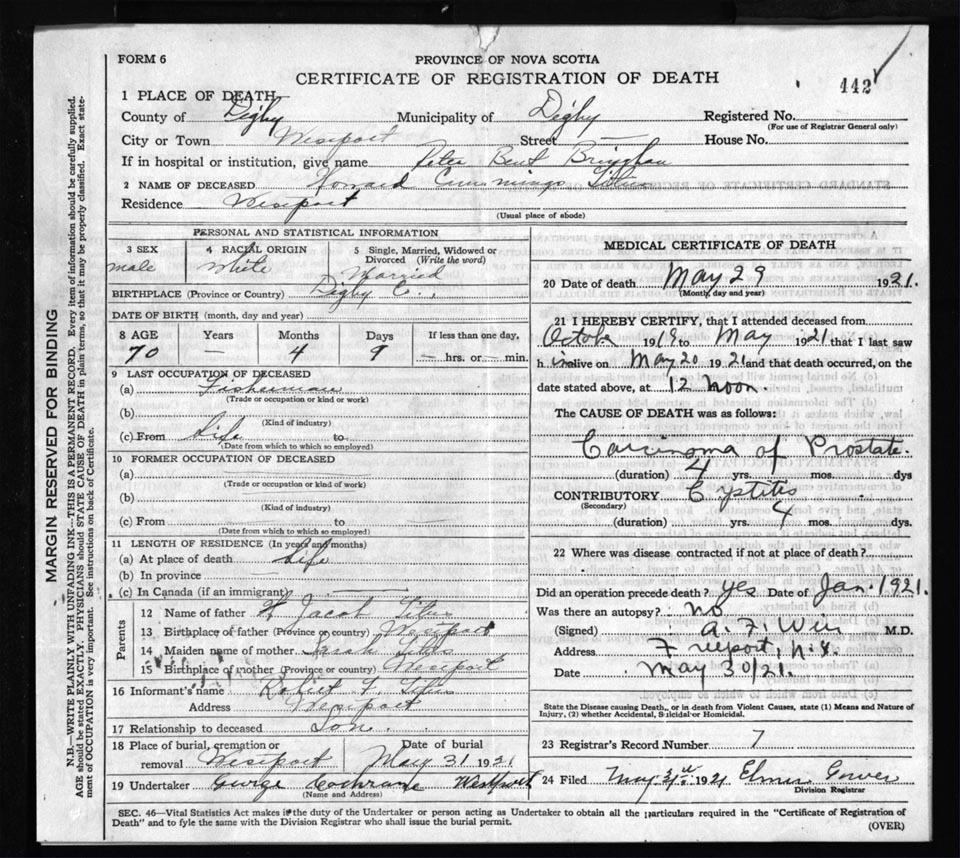 FORM 6
PROVINCE OF NOVA SCOTIA
CERTIFICATE OF REGISTRATION OF DEATH
442
1 PLACE OF DEATH
County of Digby Municipality of Digby Registered No.
(For use of Registrar General only)
City or Town Westport Street — House No.
If in hospital or institution, give name Peter Bent Brigham
2 NAME OF DECEASED Howard Cummings Titus
Residence Westport
(Usual place of abode)
PERSONAL AND STATISTICAL INFORMATION
3 SEX 4 RACIAL ORIGIN 5 Single, Married, Widowed or Divorced (Write the word)
male white Married
BIRTHPLACE (Province or Country) Digby C.
DATE OF BIRTH (month, day and year)
8 AGE Years Months Days If less than one day,
70 — 4 9 — hrs. or — min.
9 LAST OCCUPATION OF DECEASED
(a) Fisherman
(Trade or occupation or kind or work)
(b)
(Kind of industry)
(c) From Life to
(Date from which to which so employed)
10 FORMER OCCUPATION OF DECEASED
(a)
(Trade or occupation or kind or work)
(b)
(Kind of industry)
(c) From to
(Date from which to which so employed)
11 LENGTH OF RESIDENCE (In years and months)
(a) At place of death Life
(b) In province
(c) In Canada (if an immigrant)
Parents
12 Name of father Jacob Titus
13 Birthplace of father (Province or country) Westport
14 Maiden name of mother Sarah
15 Birthplace of mother (Province or country) Westport
16 Informant's name Robert F. Titus
Address Westport
17 Relationship to deceased Son
18 Place of burial, cremation or removal Westport Date of burial May 31 1921
19 Undertaker George Cochrane Westport
(Name and Address)
MEDICAL CERTIFICATE OF DEATH
20 Date of death May 29 1921.
(Month, day and year)
21 I HEREBY CERTIFY, that I attended deceased from
Octob 1918 to May 1921 that I last saw
h im alive on May 20 1921 and that death occurred, on the
date stated above, at 12 noon.
The CAUSE OF DEATH was as follows:
Carcinoma of Prostate.
(duration) 4 yrs. mos. dys
CONTRIBUTORY Cystitis
(Secondary)
(duration) yrs. 4 mos. dys.
22 Where was disease contracted if not at place of death?
Did an operation precede death? yes Date of Jan. 1921.
Was there an autopsy? no
(Signed) A. F. M.D.
Address Freeport, N.S.
Date May 30/21.
State the Disease causing Death, or in death from Violent Causes, state (1) Means and Nature of
Injury, (2) whether Accidental, Suicidal or Homicidal.
23 Registrar's Record Number 7
24 Filed May 31st 1921 Elmer Gower
Division Registrar
SEC. 46—Vital Statistics Act makes it the duty of the Undertaker or person acting as Undertaker to obtain all the particulars required in the "Certificate of Registration of
Death" and to fyle the same with the Division Registrar who shall issue the burial permit.
(OVER)
MARGIN RESERVED FOR BINDING
N.B.—WRITE PLAINLY WITH UNFADING INK—THIS IS A PERMANENT RECORD. Every item of information should be carefully supplied.
AGE should be stated EXACTLY. PHYSICIANS should STATE CAUSE OF DEATH in plain terms, so that it may be properly classified. Exact state-
ment of OCCUPATION is very important. See instructions on back of Certificate.